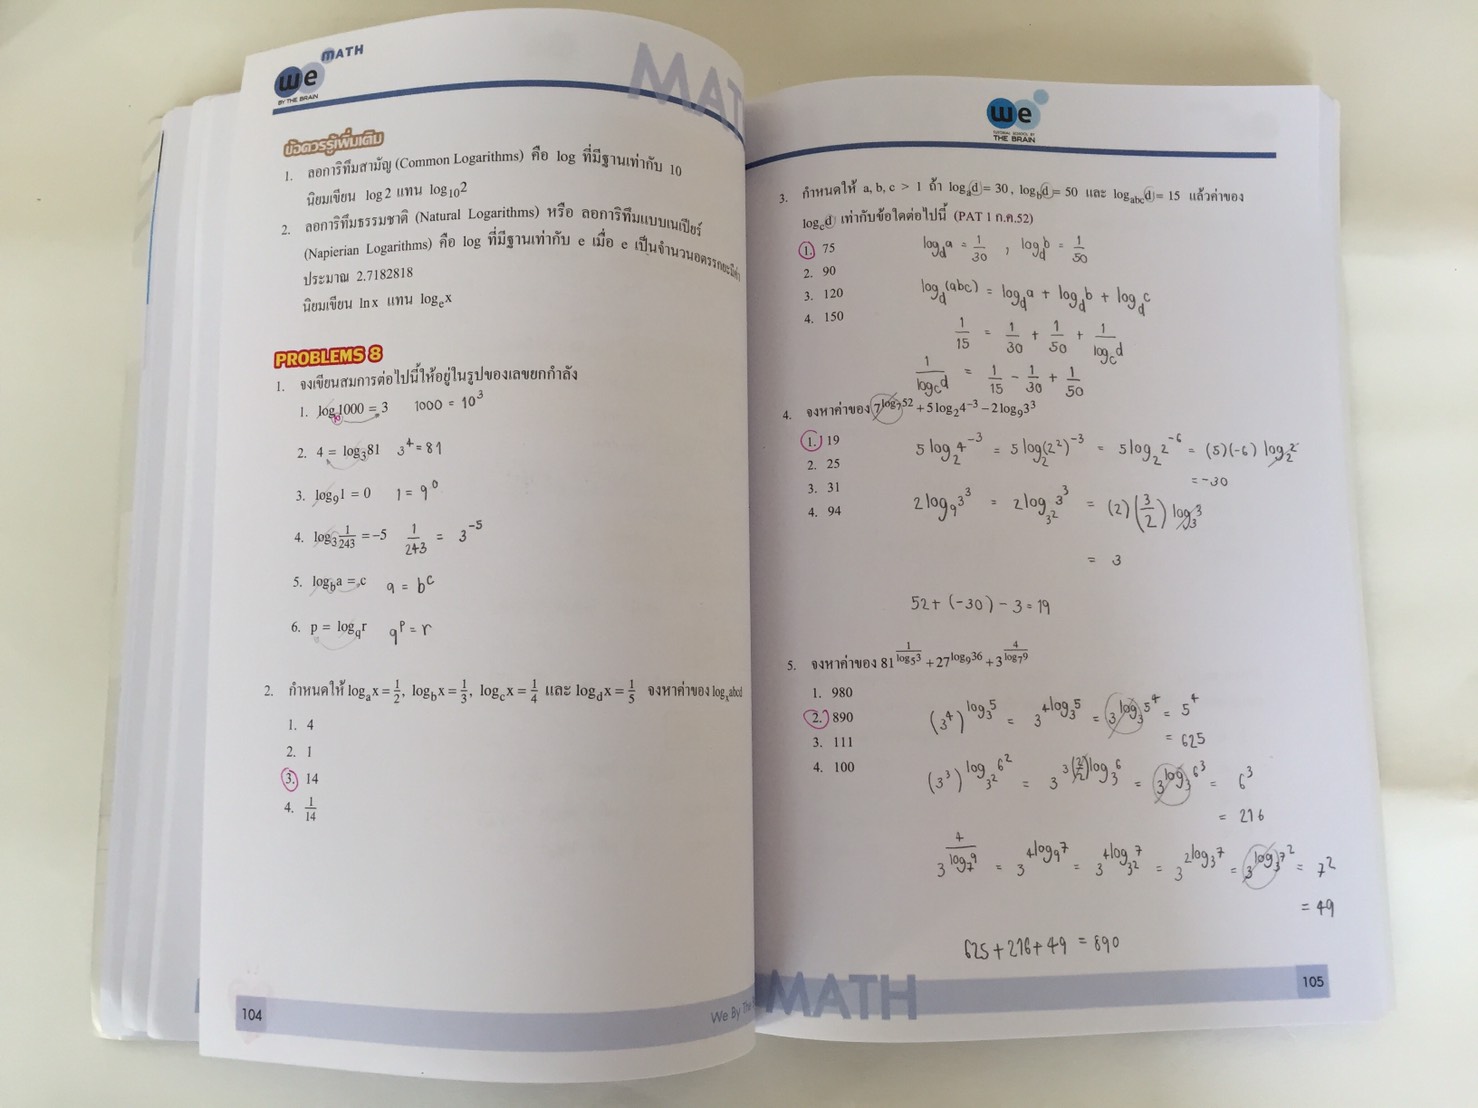 we MATH
BY THE BRAIN
MAT
ข้อควรรู้เพิ่มเติม
1. ลอการิทึมสามัญ (Common Logarithms) คือ log ที่มีฐานเท่ากับ 10
นิยมเขียน log 2 แทน log₁₀2
2. ลอการิทึมธรรมชาติ (Natural Logarithms) หรือ ลอการิทึมแบบเนเปียร์
(Napierian Logarithms) คือ log ที่มีฐานเท่ากับ e เมื่อ e เป็นจำนวนอตรรกยะมีค่า
ประมาณ 2.7182818
นิยมเขียน ln x แทน logₑx
PROBLEMS 8
1. จงเขียนสมการต่อไปนี้ให้อยู่ในรูปของเลขยกกำลัง
1. log₁₀1000 = 3 1000 = 10³
2. 4 = log₃81 3⁴ = 81
3. log₉1 = 0 1 = 9⁰
4. log₃ 1/243 = -5 1/243 = 3⁻⁵
5. log_b a = c a = b^c
6. p = log_q r q^p = r
2. กำหนดให้ logₐx = 1/2, log_b x = 1/3, log_c x = 1/4 และ log_d x = 1/5 จงหาค่าของ logₓabcd
1. 4
2. 1
3. 14
4. 1/14
104
We By The
we
TUTORIAL SCHOOL BY
THE BRAIN
3. กำหนดให้ a, b, c > 1 ถ้า logₐd = 30, log_b d = 50 และ log_abc d = 15 แล้วค่าของ
log_c d เท่ากับข้อใดต่อไปนี้ (PAT 1 ก.ค.52)
1. 75 log_d a = 1/30 , log_d b = 1/50
2. 90
3. 120 log_d (abc) = log_d a + log_d b + log_d c
4. 150
1/15 = 1/30 + 1/50 + 1/log_c d
1/log_c d = 1/15 - 1/30 + 1/50
4. จงหาค่าของ 7^(log₇52) + 5 log₂4⁻³ - 2 log₉3³
1. 19 5 log₂4⁻³ = 5 log₂(2²)⁻³ = 5 log₂2⁻⁶ = (5)(-6) log₂2
2. 25 = -30
3. 31 2 log₉3³ = 2 log_3² 3³ = (2)(3/2) log₃3
4. 94
= 3
52 + (-30) - 3 = 19
5. จงหาค่าของ 81^(1/log₅3) + 27^(log₉36) + 3^(4/log₇9)
1. 980
2. 890 (3⁴)^(log₃5) = 3^(4log₃5) = 3^(log₃5⁴) = 5⁴
3. 111 = 625
4. 100 (3³)^(log_3² 6²) = 3^(3(2/2)log₃6) = 3^(log₃6³) = 6³
= 216
3^(4/log₇9) = 3^(4log₉7) = 3^(4log_3² 7) = 3^(2log₃7) = 3^(log₃7²) = 7²
= 49
625 + 216 + 49 = 890
MATH
105